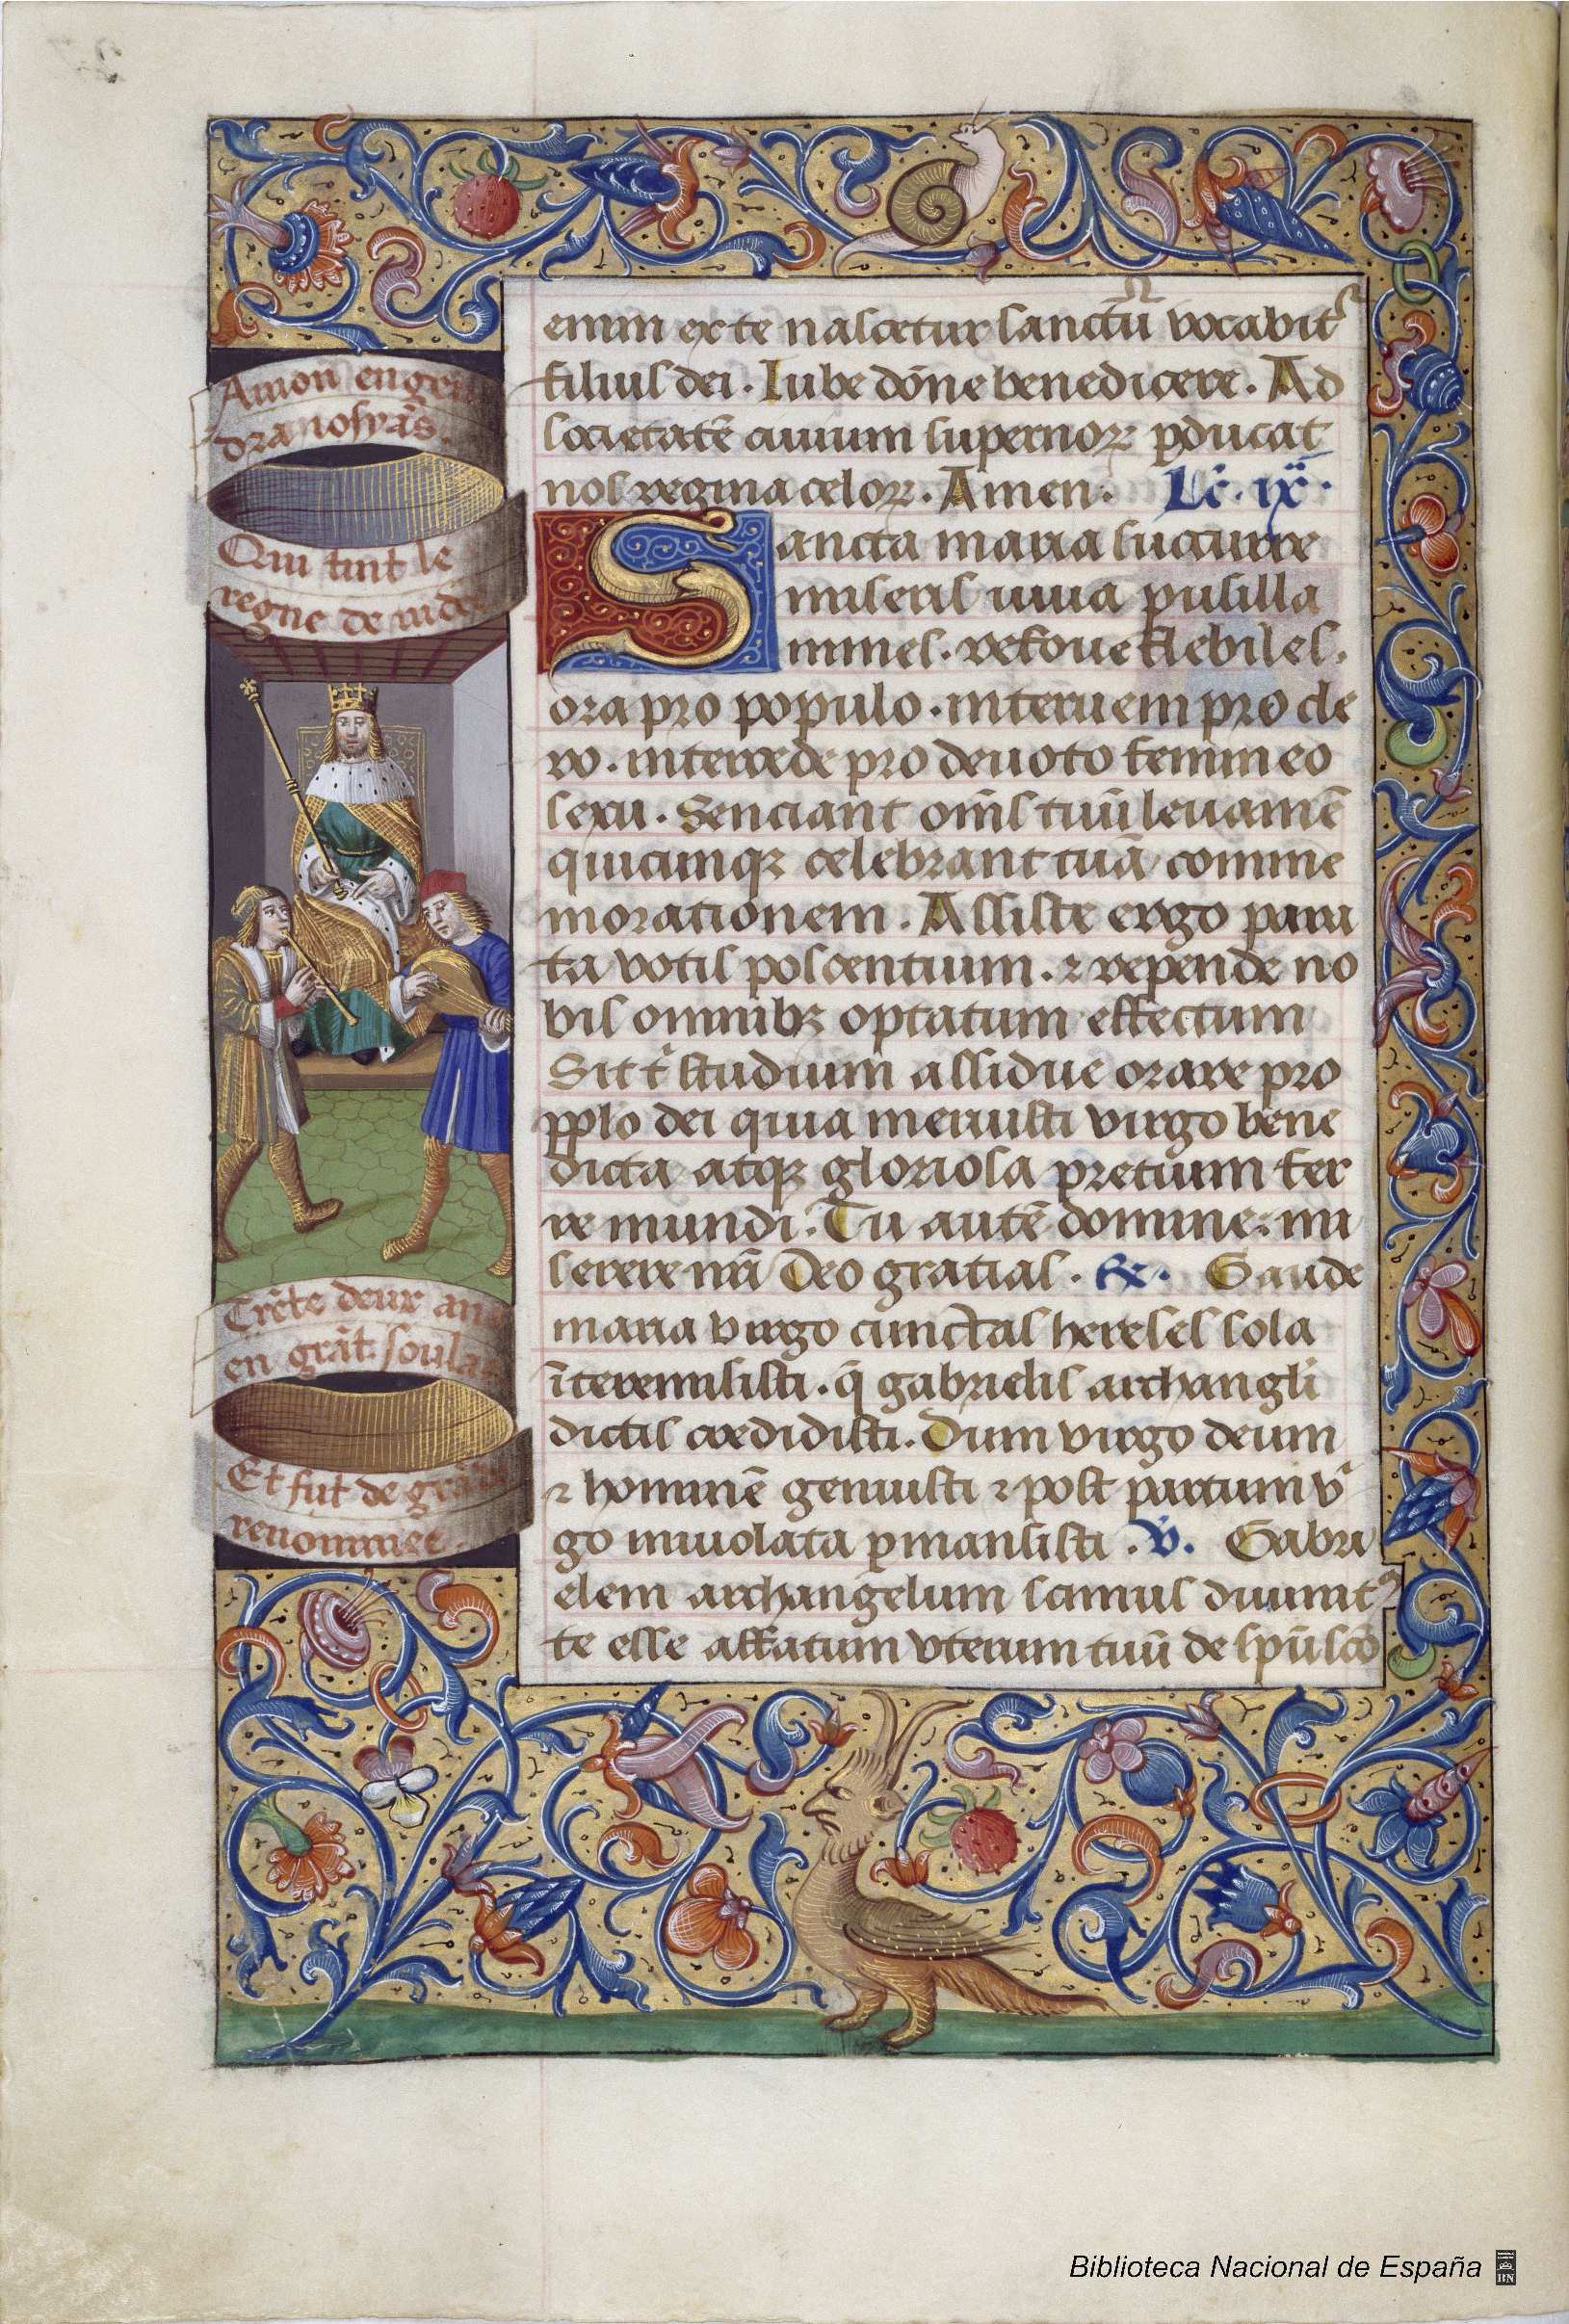 Amon engen
dra iosyas.
Qui tint le
regne de iudee
Trẽte deux ans
en grãt soulas
Et fut de grãt
renommee.
enim ex te nascetur sanctũ vocabit᷑
filius dei. Iube dõne benedicere. Ad
societatẽ ciuium supernoꝝ ꝑducat
nos regina celoꝝ. Amen. Lc̃. ix.
Sancta maria succurre
miseris iuua pusilla
nimes. refoue flebiles.
ora pro populo. interueni pro cle
ro. intercede pro deuoto femineo
sexu. Senciant oms̃ tuũ leuamẽ
quicunqꝫ celebrant tuã comme
morationem. Assiste ergo para
ta votis poscentium. ⁊ repende no
bis omnibꝫ optatum effectum
Sit t̾ studium assidue orare pro
pplo dei quia meruisti virgo bene
dicta atqꝫ gloriosa pretium fer
re mundi. Tu autẽ domine. mi
serere nr̃i Deo gratias. ℟. Gaude
maria virgo cunctas hereses sola
ĩteremisisti. q̃ gabrielis archangli
dictis credidisti. Dum virgo deum
⁊ hominẽ genuisti ⁊ post partum vi
go inuiolata ꝑmansisti. ℣. Gabri
elem archangelum scimus diuinitꝰ
te esse affatum vterum tuũ de spũ sc̃o
Biblioteca Nacional de España
BN